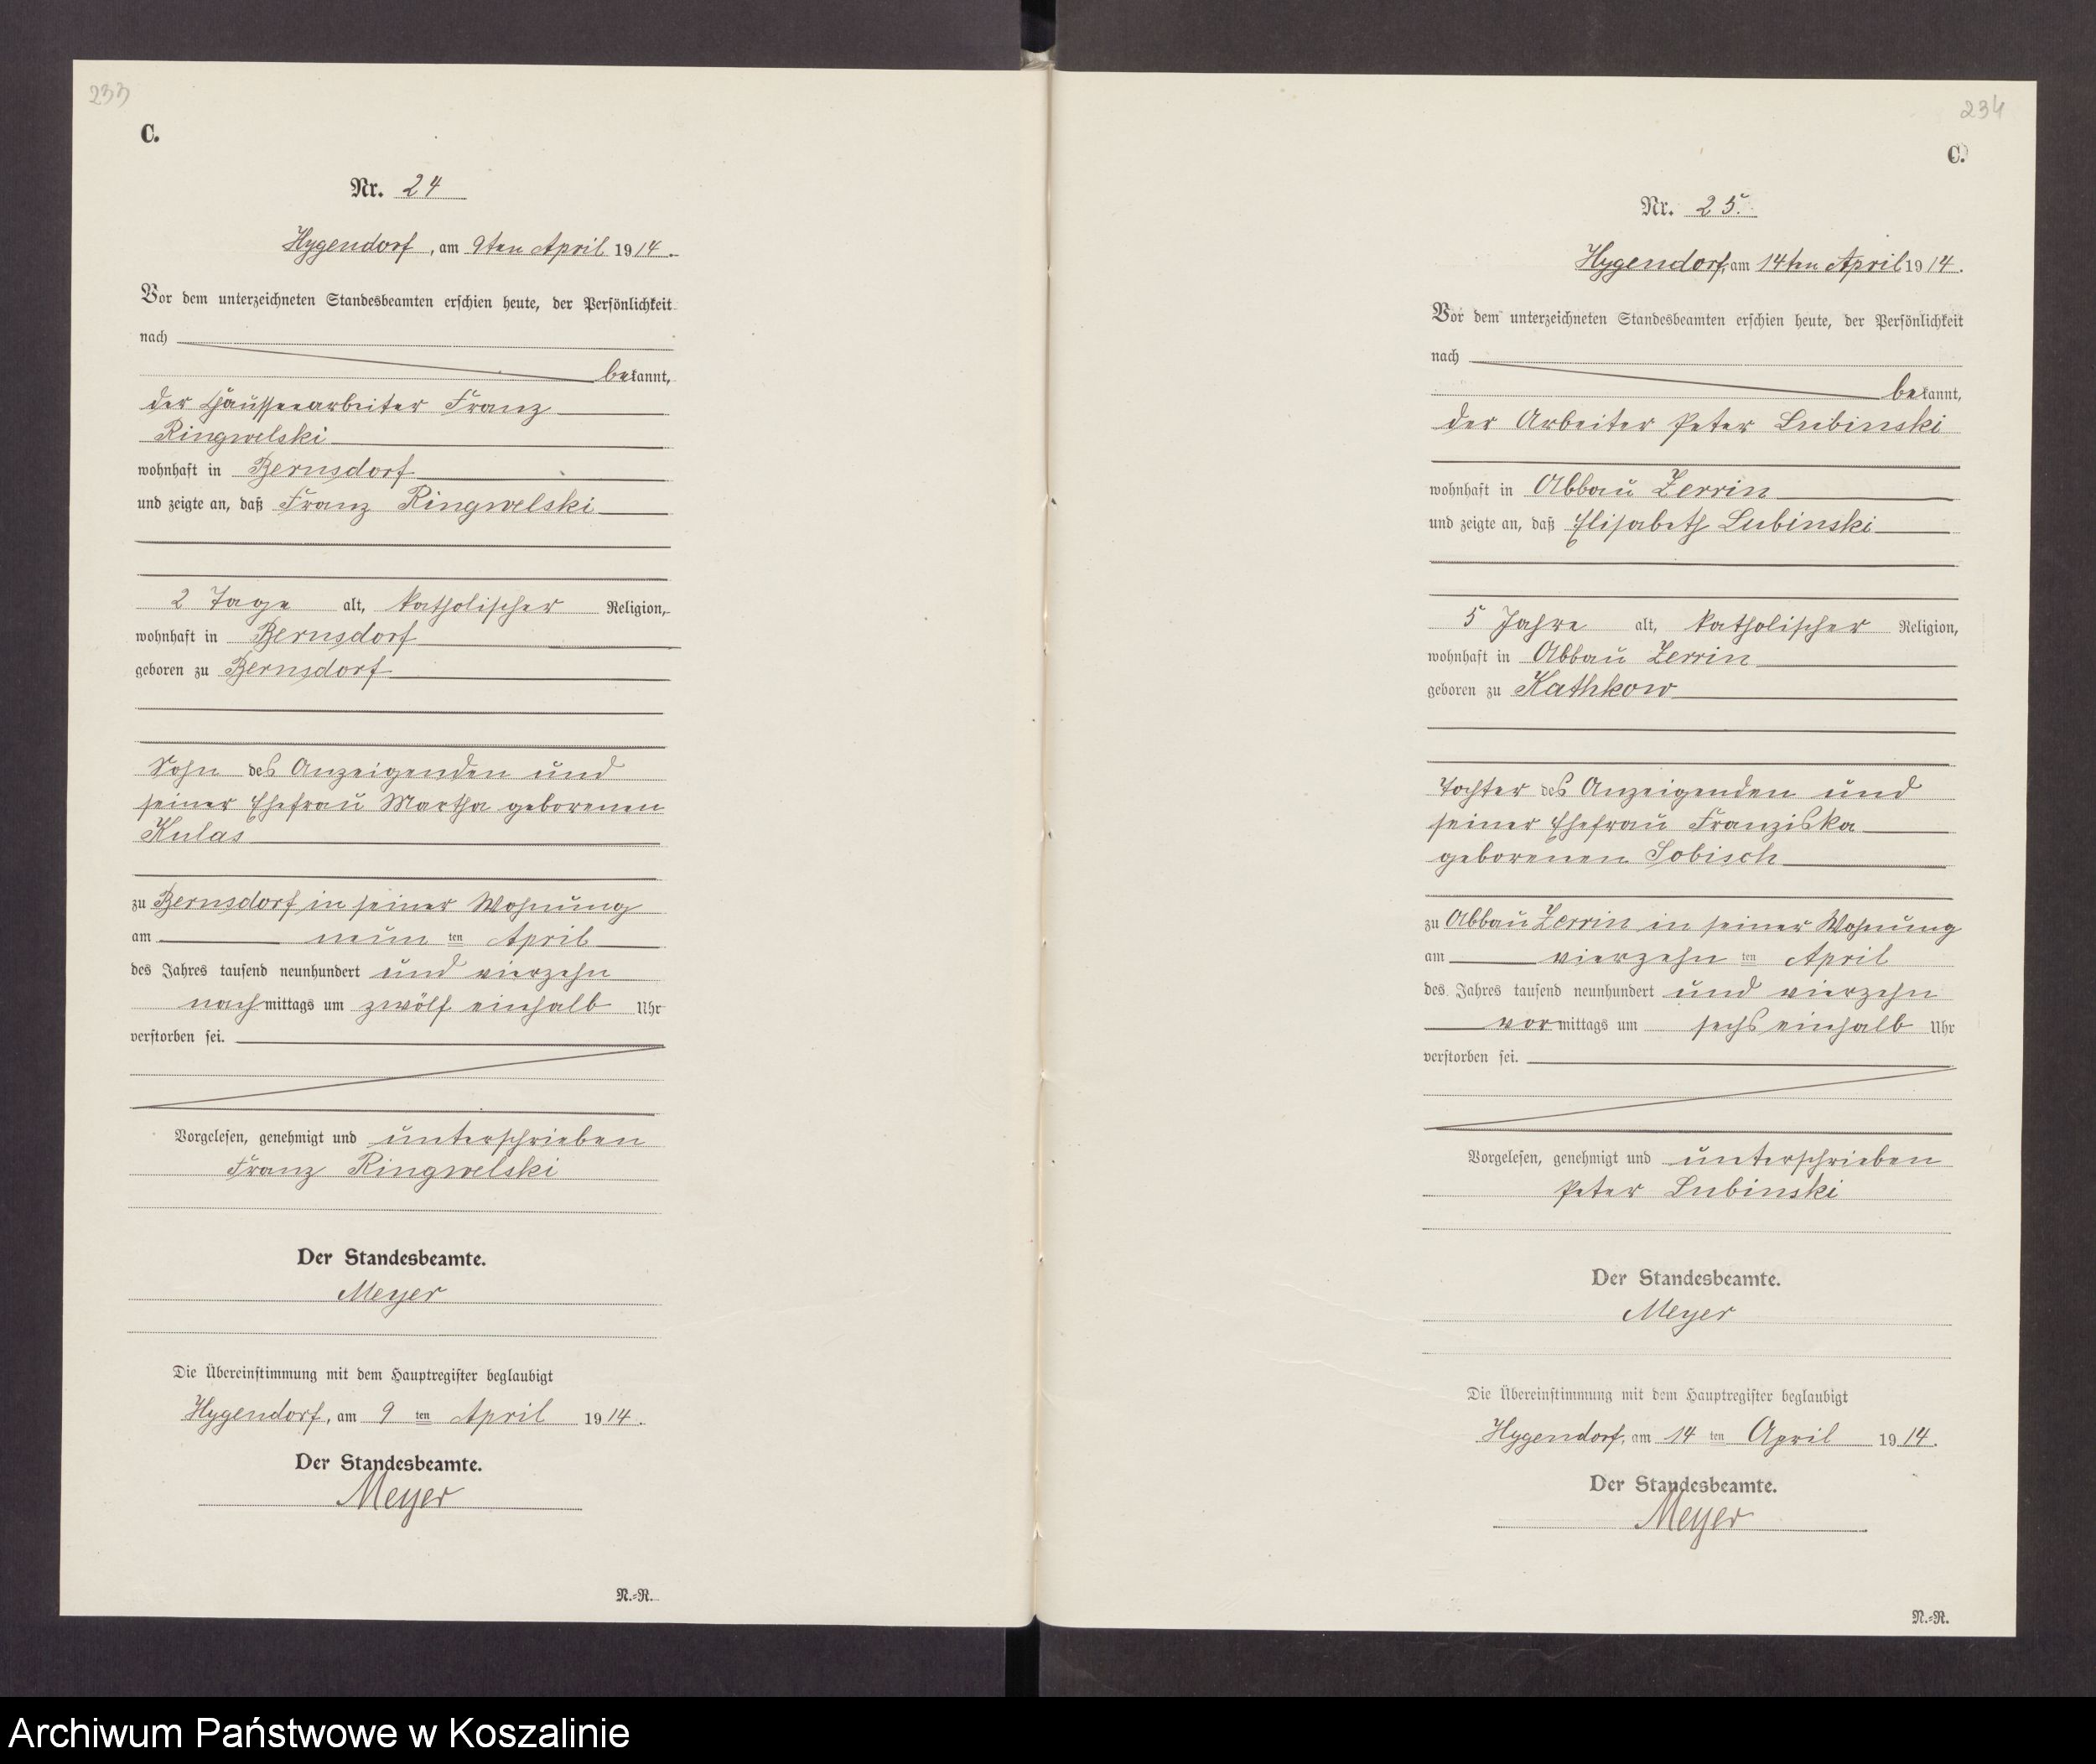 233
C.
Nr. 24
Hygendorf, am 9ten April 1914.
Vor dem unterzeichneten Standesbeamten erschien heute, der Persönlichkeit
nach
bekannt,
der Chausseearbeiter Franz
Ringwelski
wohnhaft in Bernsdorf
und zeigte an, daß Franz Ringwelski
2 Tage alt, katholischer Religion,
wohnhaft in Bernsdorf
geboren zu Bernsdorf
Sohn des Anzeigenden und
seiner Ehefrau Martha geborenen
Kulas
zu Bernsdorf in seiner Wohnung
am neun ten April
des Jahres tausend neunhundert und vierzehn
nachmittags um zwölf einhalb Uhr
verstorben sei.
Vorgelesen, genehmigt und unterschrieben
Franz Ringwelski
Der Standesbeamte.
Meyer
Die Übereinstimmung mit dem Hauptregister beglaubigt
Hygendorf, am 9 ten April 1914.
Der Standesbeamte.
Meyer
N.=R.
234
C.
Nr. 25.
Hygendorf, am 14ten April 1914.
Vor dem unterzeichneten Standesbeamten erschien heute, der Persönlichkeit
nach
bekannt,
der Arbeiter Peter Lubinski
wohnhaft in Abbau Zerrin
und zeigte an, daß Elisabeth Lubinski
5 Jahre alt, katholischer Religion,
wohnhaft in Abbau Zerrin
geboren zu Kathkow
Tochter des Anzeigenden und
seiner Ehefrau Franziska
geborenen Sobisch
zu Abbau Zerrin in seiner Wohnung
am vierzehn ten April
des Jahres tausend neunhundert und vierzehn
vormittags um sechs einhalb Uhr
verstorben sei.
Vorgelesen, genehmigt und unterschrieben
Peter Lubinski
Der Standesbeamte.
Meyer
Die Übereinstimmung mit dem Hauptregister beglaubigt
Hygendorf, am 14 ten April 1914.
Der Standesbeamte.
Meyer
N.=R.
Archiwum Państwowe w Koszalinie